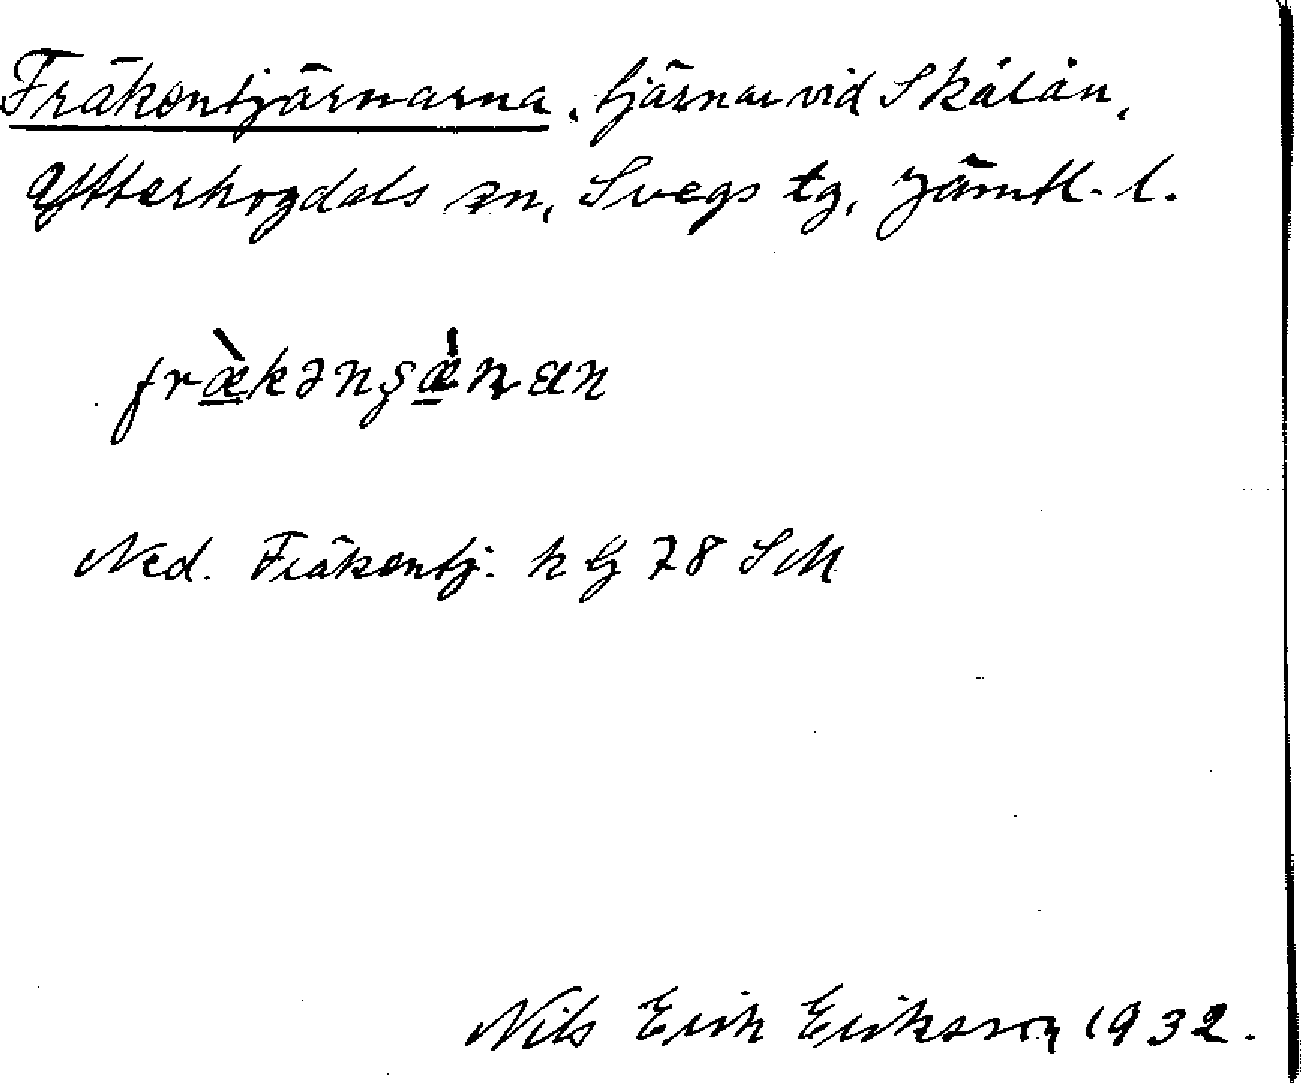 Fräkentjärnarna, tjärnar vid Skålån,
Ytterhogdals sn, Svegs tg, Jämtl. l.
fræ̀kənʂǽɳan
Ned. Fräkentj. k bj 78 SM
Nils Erik Eriksson 1932.